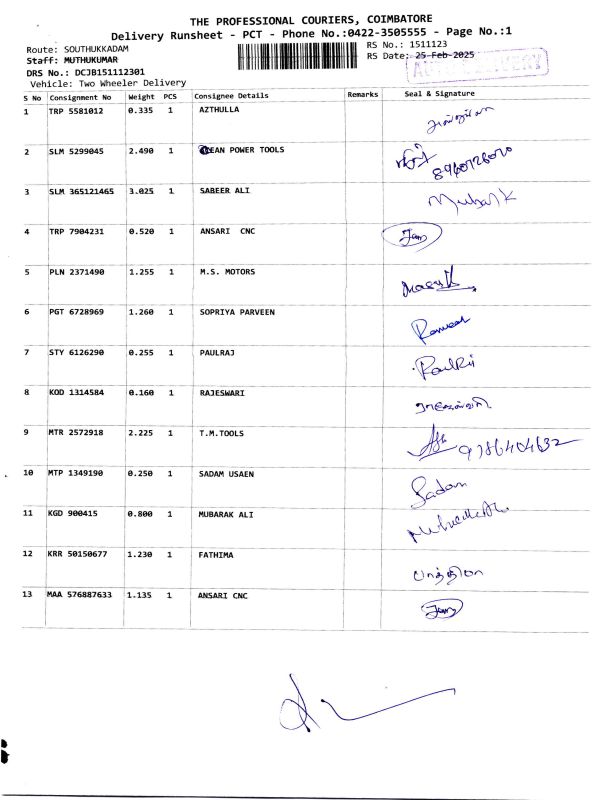 THE PROFESSIONAL COURIERS, COIMBATORE
Delivery Runsheet - PCT - Phone No.:0422-3505555 - Page No.:1
Route: SOUTHUKKADAM RS No.: 1511123
Staff: MUTHUKUMAR RS Date: 25-Feb-2025
DRS No.: DCJB151112301
Vehicle: Two Wheeler Delivery
S No Consignment No Weight PCS Consignee Details Remarks Seal & Signature
1 TRP 5581012 0.335 1 AZTHULLA
2 SLM 5299045 2.490 1 EAN POWER TOOLS
3 SLM 365121465 3.025 1 SABEER ALI
4 TRP 7904231 0.520 1 ANSARI CNC
5 PLN 2371490 1.255 1 M.S. MOTORS
6 PGT 6728969 1.260 1 SOPRIYA PARVEEN
7 STY 6126290 0.255 1 PAULRAJ
8 KOD 1314584 0.160 1 RAJESWARI
9 MTR 2572918 2.225 1 T.M.TOOLS 9786404632
10 MTP 1349190 0.250 1 SADAM USAEN Sadam
11 KGD 900415 0.800 1 MUBARAK ALI
12 KRR 50150677 1.230 1 FATHIMA பாத்திமா
13 MAA 576887633 1.135 1 ANSARI CNC